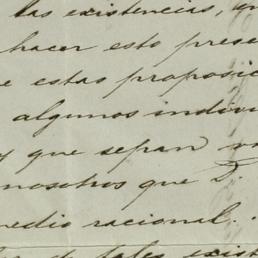 las existencias, y
hacer esto prese
e estas proposic
algunos indivi
y que sepan
nosotros que D.
medio racional.
de tales exist